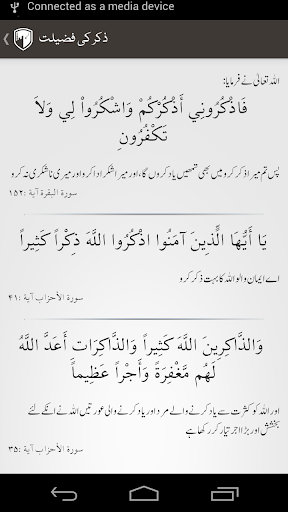 Connected as a media device
ذکر کی فضیلت
اللہ تعالیٰ نے فرمایا:
فَاذْكُرُونِي أَذْكُرْكُمْ وَاشْكُرُواْ لِي وَلاَ
تَكْفُرُونِ
پس تم میرا ذکر کرو میں بھی تمھیں یاد کروں گا، اور میرا شکر ادا کرو اور میری ناشکری نہ کرو
سورة البقرة آية :۱۵۲
يَا أَيُّهَا الَّذِينَ آمَنُوا اذْكُرُوا اللَّهَ ذِكْراً كَثِيراً
اے ایمان والو اللہ کا بہت ذکر کرو
سورة الأحزاب آية :۴۱
وَالذَّاكِرِينَ اللَّهَ كَثِيراً وَالذَّاكِرَاتِ أَعَدَّ اللَّهُ
لَهُم مَّغْفِرَةً وَأَجْراً عَظِيماً
اور اللہ کو کثرت سے یاد کرنے والے مرد اور یاد کرنے والی عورتیں اللہ نے انکے لئے
بخشش اور بڑا اجر تیار کر رکھا ہے
سورة الأحزاب آية :۳۵